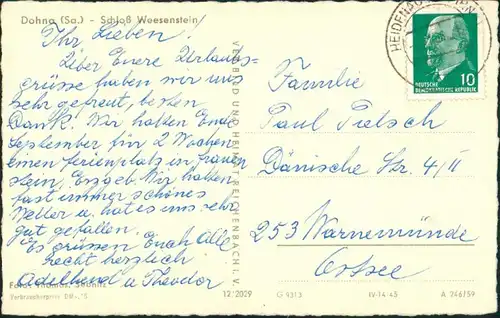 Dohna (Sa.) - Schloß Weesenstein
Ihr Lieben!
Über Euere Urlaubs-
grüsse haben wir uns
sehr gefreut, besten
Dank. Wir hatten Ende
September für 2 Wochen
einen Ferienplatz in Frauen
stein, Erzgeb. Wir hatten
fast immer schönes
Wetter u. hat es uns sehr
gut gefallen.
Es grüssen Euch Alle
recht herzlich
Adelheid u. Theodor
Foto:
Verbraucherpreis
VERLAG BILD UND HEIMAT REICHENBACH I. V.
12/2029
G 9313
IV-14-45
A 246/59
HEIDENAU
10
DEUTSCHE
DEMOKRATISCHE REPUBLIK
Familie
Paul
Dänische Str. 4/II
253 Warnemünde
Ostsee